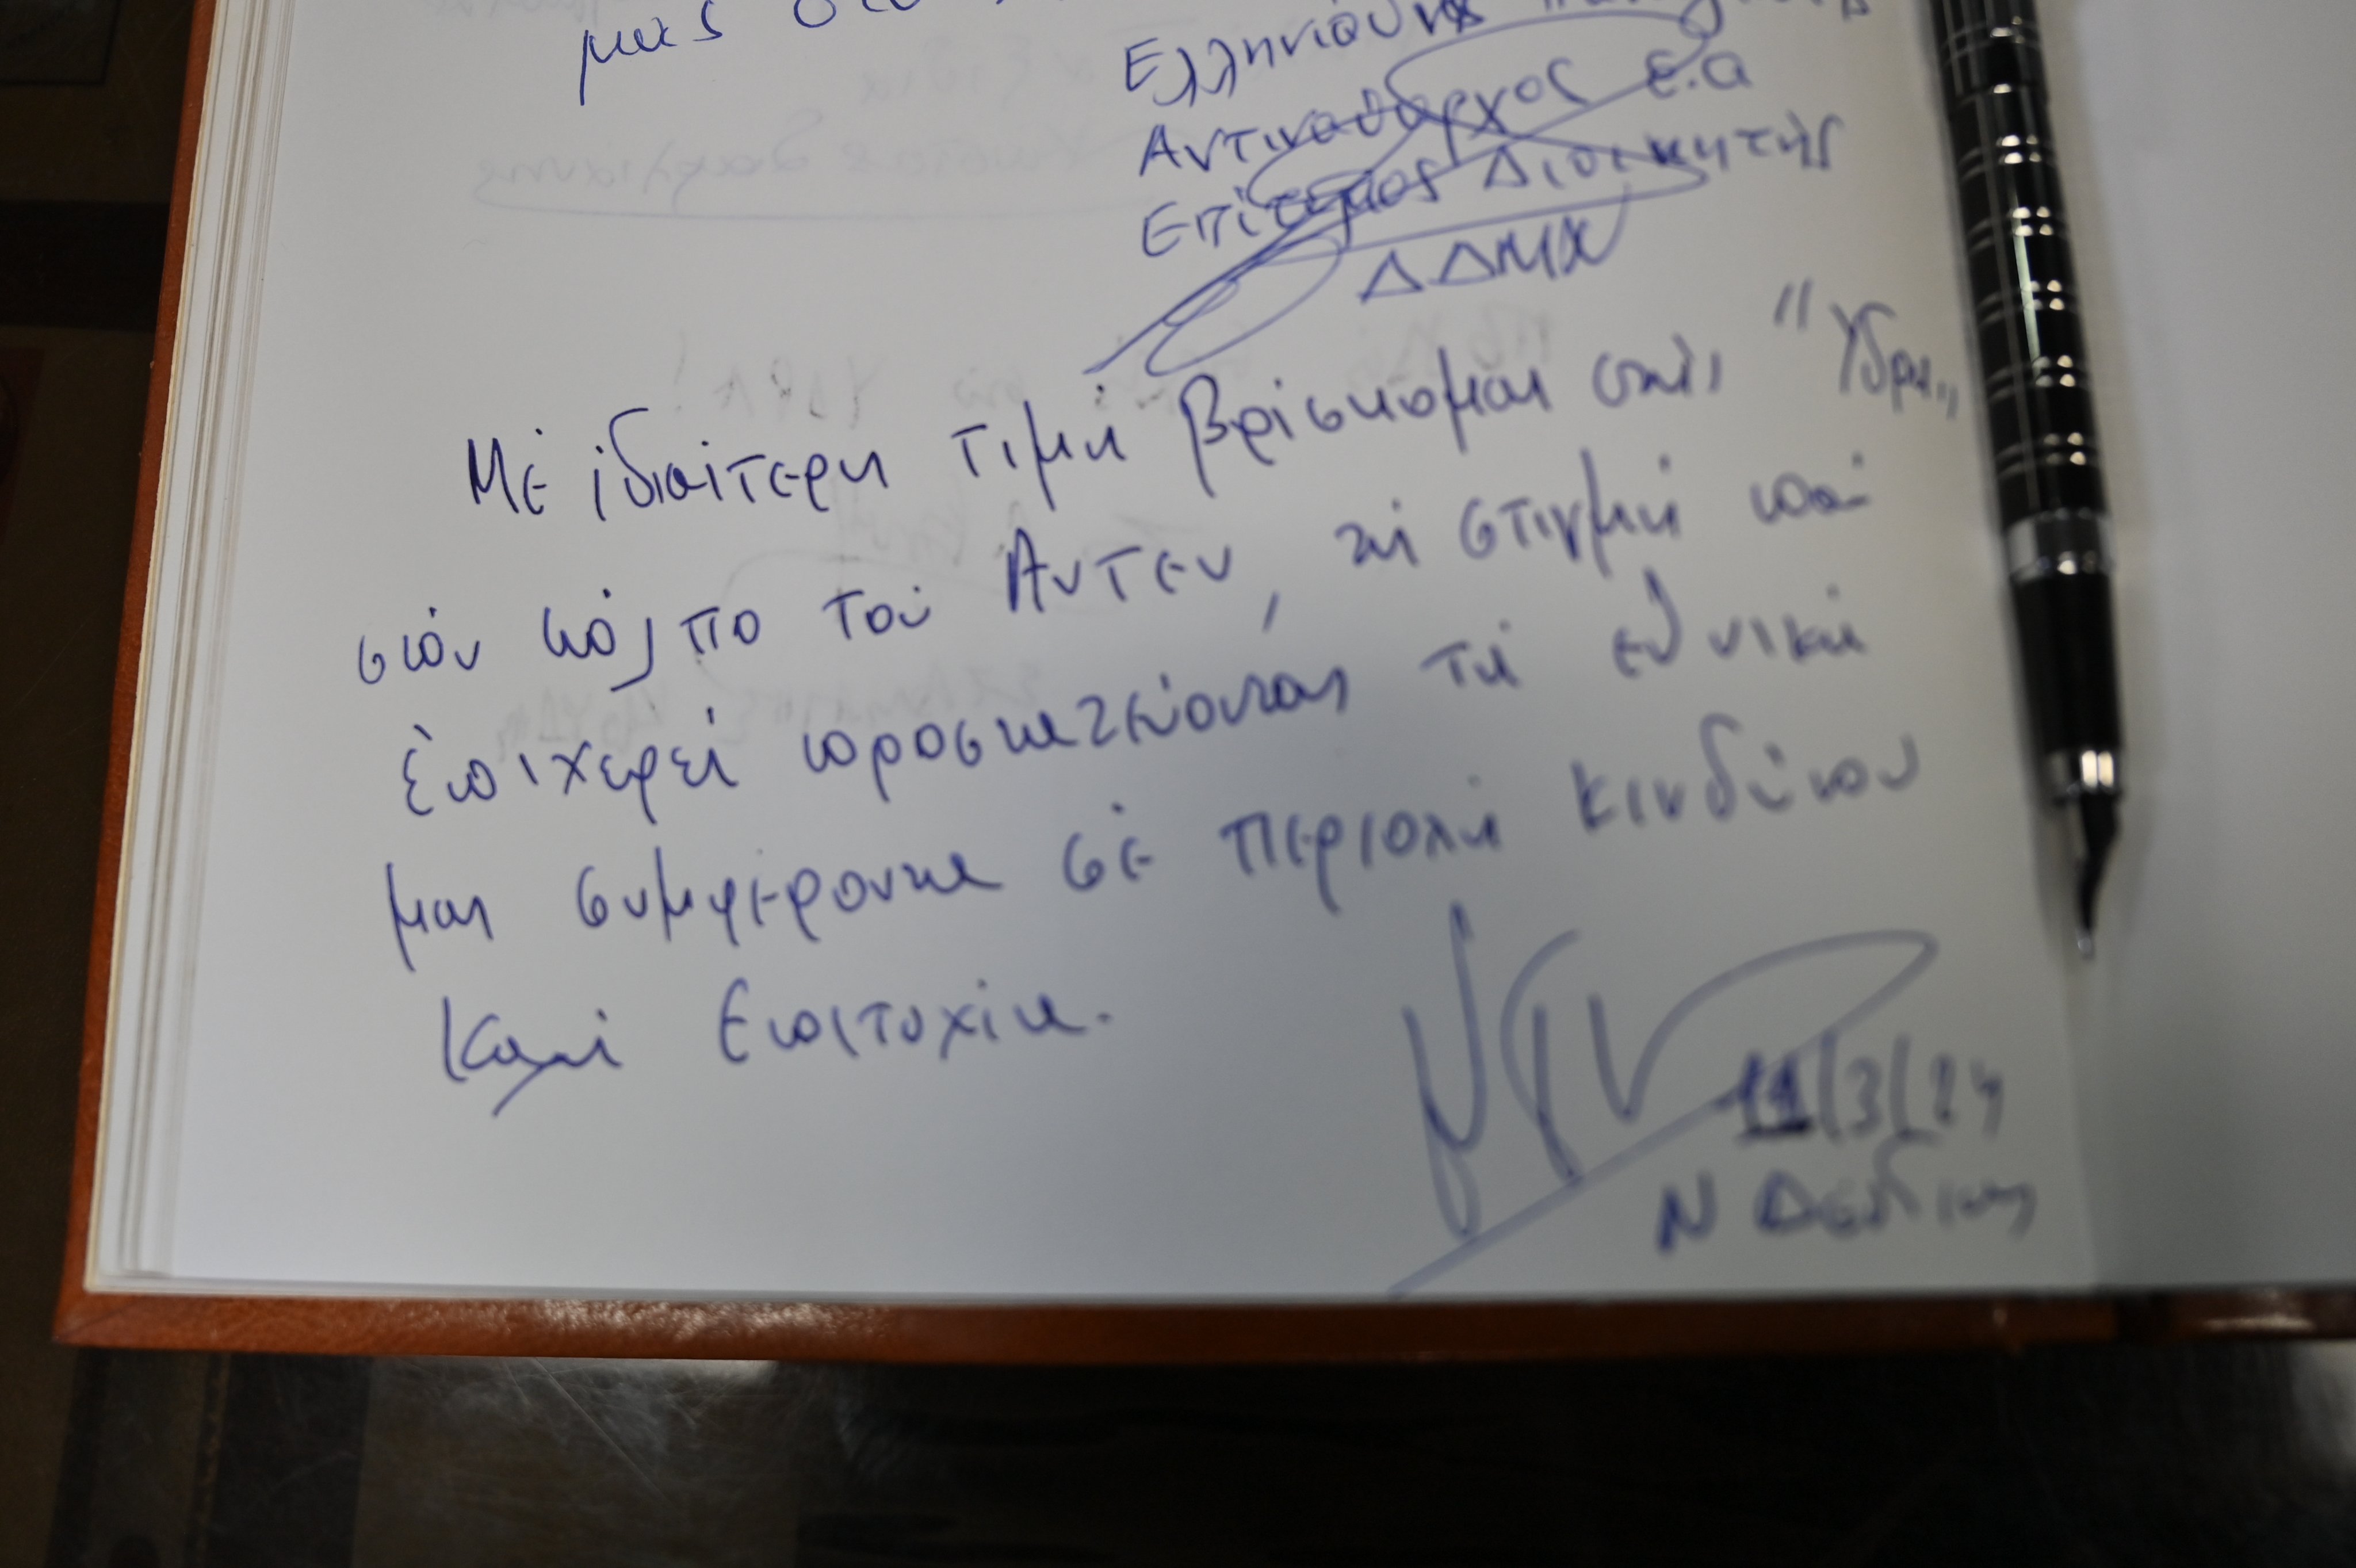 μας
Ελληνισύνης
Αντιναύαρχος ε.α
Επίτιμος Διοικητής
ΔΔΜΧ
Μέ ἰδιαίτερη τιμή βρίσκομαι στήν "Υδρα„
στόν κόλπο τού Αντεν, τή στιγμή πού
ἐπιχειρεί προστατεύοντας τά εθνικά
μας συμφέροντα σέ περιοχή κινδύνου
Καλή Επιτυχία.
11/3/24
Ν Δένδιας